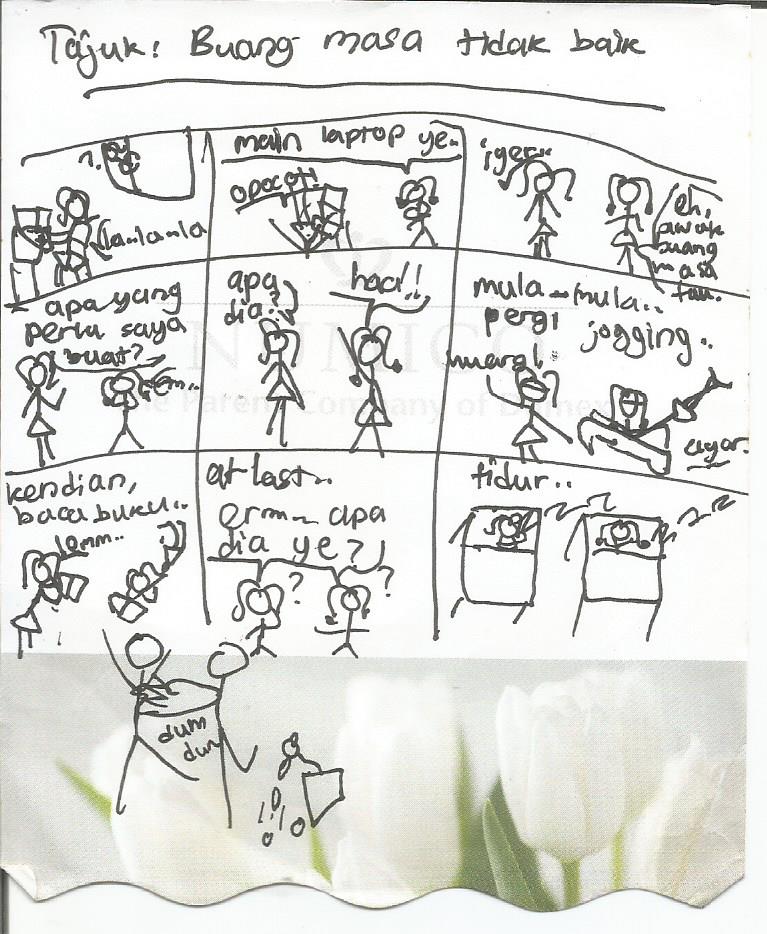 Tajuk: Buang masa tidak baik
la..la..la
main laptop ye..
opocot!
iyer..
eh,
awak
buang
masa
tau.
apa yang
perlu saya
buat?
em..
apa
dia?
haa!!
mula-mula..
pergi
jogging..
ayar.
kendian,
baca buku..
at last..
erm.. apa
dia ye?
?
?
tidur..
dum
dum
NUMICO
The Parent Company of Dumex